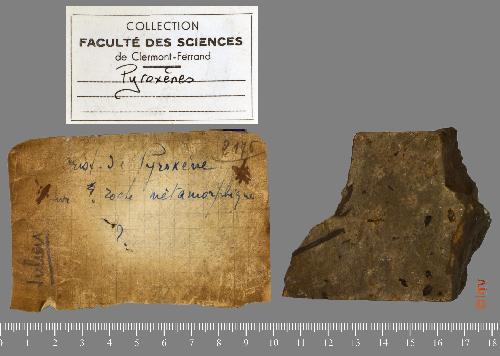 COLLECTION
FACULTÉ DES SCIENCES
de Clermont-Ferrand
Pyroxènes
crist. de Pyroxène
sur roche métamorphique
?
Julien
0 1 2 3 4 5 6 7 8 9 10 11 12 13 14 15 16 17 18